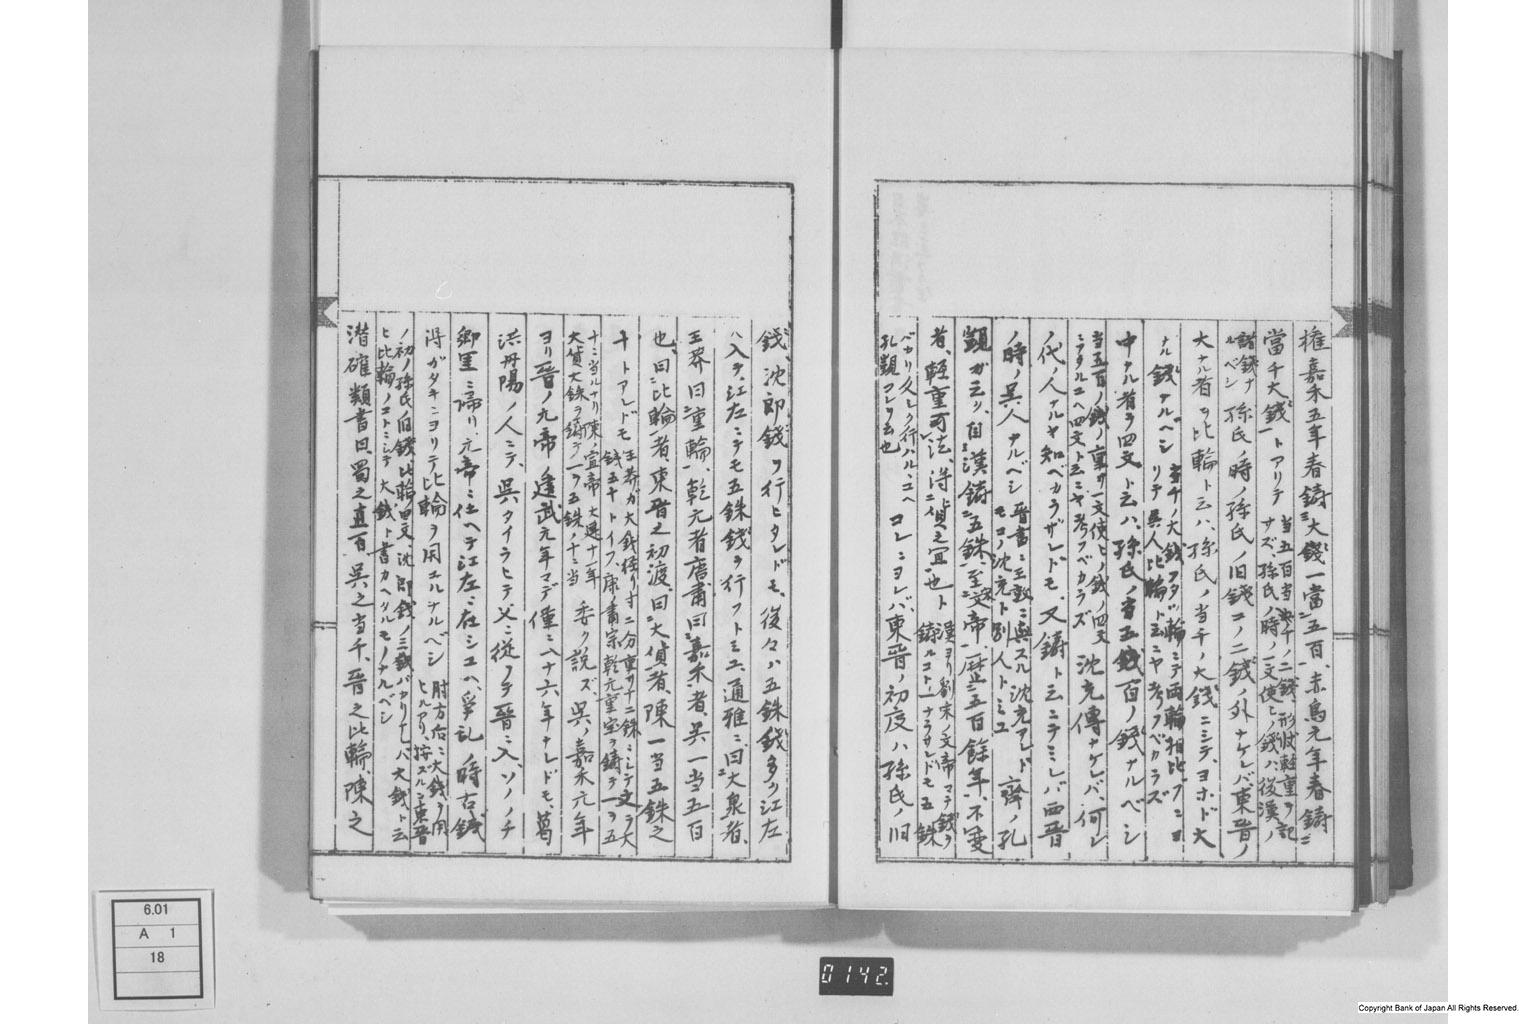 権嘉禾五年春鋳大錢一當五百、赤烏元年春鋳
當千大錢トアリテ
當五百當千ノ二錢、形状軽重ヲ記
サズ孫氏ノ時ノ一文使ヒノ錢ハ後漢ノ
諸錢ナ
ルベシ
孫氏ノ時ノ孫氏ノ旧錢コノ二錢ノ外ナケレバ東晋ノ
大ナル者ヲ比輪ト云ハ、孫氏ノ当千ノ大錢ニシテ、ヨホド大
ナル錢ナルベシ
当千ノ大錢ヲタツ輪ニテ両輪相比フニヨ
リテ呉人比輪ト云ニヤ考フベカラズ
中ナル者ヲ四文ト云ハ、孫氏ノ当五百ノ錢ナルベシ
当五百ノ錢ノ重サ一文使ヒノ錢ノ四文
ニアタルユヘ四文ト云ニヤ考フベカラズ
沈充傳ナケレバ、何レ
ノ代ノ人ナルヤ知ベカラザレドモ、又鋳ト云ニテミレバ西晋
ノ時ノ呉人ナルベシ
晋書ニ王敦ニ與スル沈充アレド
モコノ沈充ト別人トミユ
齊ノ孔
覬ガ云ク、自漢鋳五銖、至宋文帝、歴五百餘年、不変
者、軽重可法、得貨之宜也ト
漢ヨリ劉宋ノ文帝マテ錢ヲ
鋳ルコト一ナラサレドモ五銖
バカリ久シク行ハル、ユヘ
孔覬コレヲ云也
コレニヨレバ、東晋ノ初度ハ孫氏ノ旧
錢、沈郎錢ヲ行ヒタレドモ、後々ハ五銖錢多ク江左
ハ入テ、江左ニテモ五銖錢ヲ行フトミユ、通雅ニ曰大泉者、
王莽曰重輪、乾元者唐肅曰嘉禾者、呉一当五百
也、曰比輪者、東晋之初渡、曰大貨者、陳一当五銖之
十トアレドモ
王莽ガ大錢径リ寸二分重サ十二銖ニシテ文ヲ大
錢五十トイフ、唐ノ肅宗乾元重宝ヲ鋳テ一ヲ五
十ニ当ルナリ陳ノ宣帝大建十一年
大貨大銖ヲ鋳テ一ヲ五銖ノ十ニ当
委ク説ズ、呉ノ嘉禾元年
ヨリ晋ノ元帝建武元年マデ僅ニ八十六年ナレドモ、葛
洪丹陽ノ人ニテ、呉タイラヒテ父ニ従フテ晋ニ入、ソノノチ
郷里ニ帰リ、元帝ニ仕ヘテ江左ニ在シユヘ、争乱ノ時古錢
得ガタキニヨリテ比輪ヲ用ユルナルベシ
肘方后ニ大錢ヲ用
ヒルアリ、按ズルニ東晋
ノ初ノ孫氏ノ旧錢、比輪四文沈郎錢ノ三錢バカリナレバ、大錢ト云
ヒ比輪ノコトニシテ大錢ト書カヘタルモノナルベシ
潜確類書曰、蜀之直百呉之当千、晋之比輪、陳之
6.01
A 1
18
0142.
Copyright Bank of Japan All Rights Reserved.